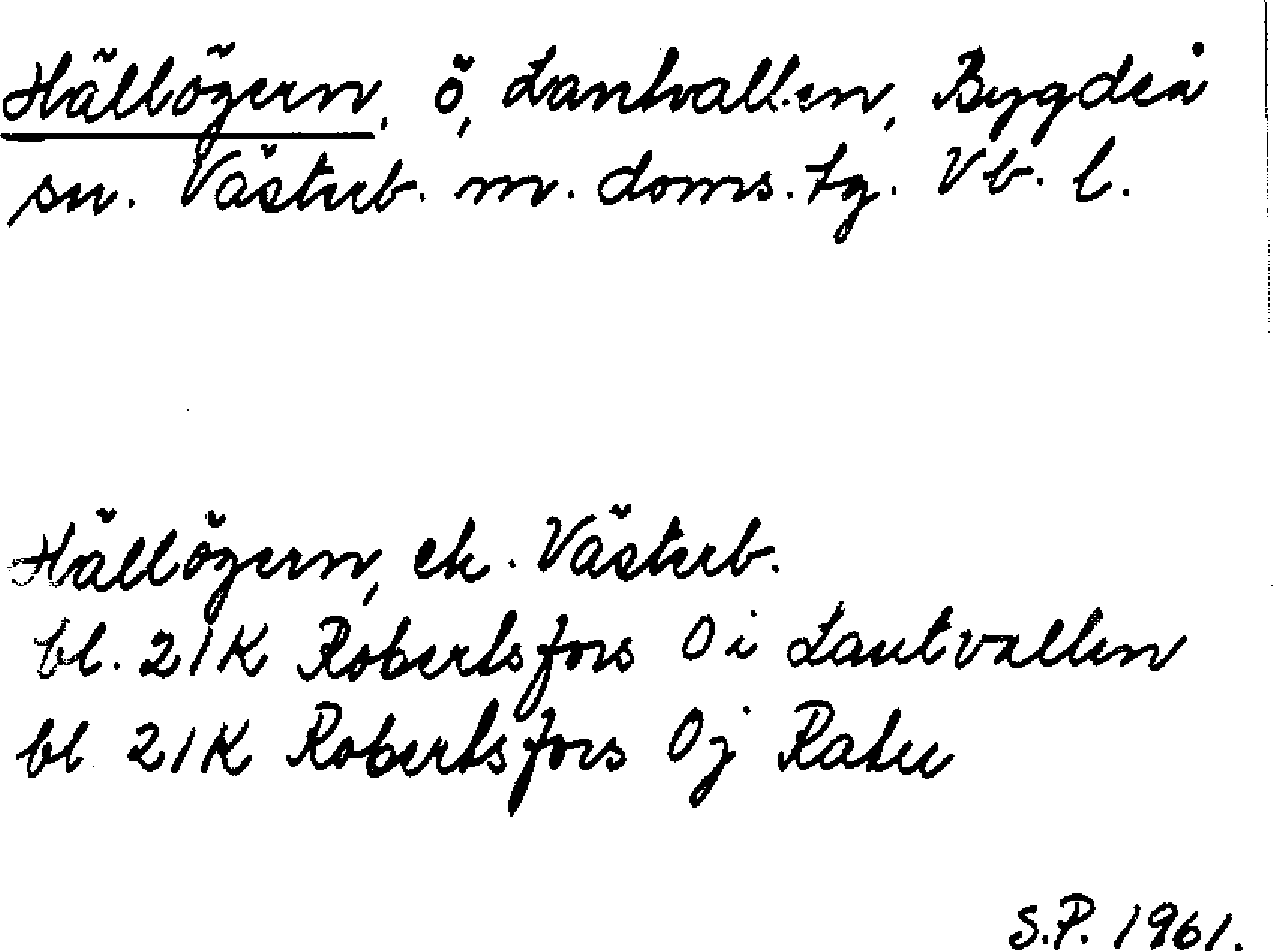 Hällögern, ö, Lantvallen, Bygdeå
sn. Västerb. m. doms. tg. Vb. l.
Hällögern, ek. Västerb.
bl. 21K Robertsfors 0i Lantvallen
bl 21K Robertsfors 0j Ratu
S.P. 1961.